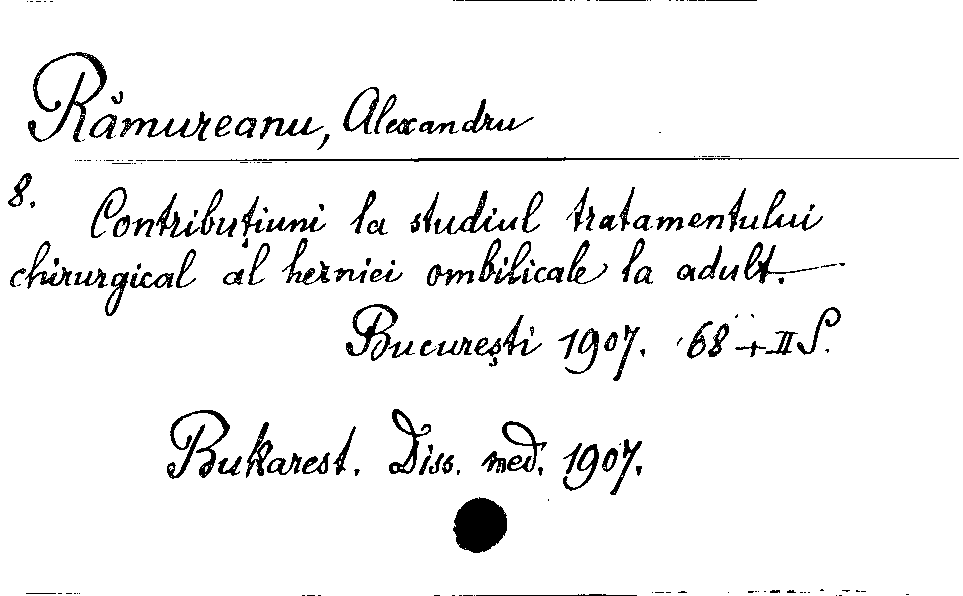 Rămureanu, Alexandru
8.
Contribuțiuni la studiul tratamentului
chirurgical al herniei ombilicale la adult.
București 1907. 68 + II S.
Bukarest. Diss. med. 1907.